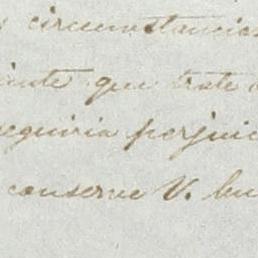 circunstancias
que trate
seguiria perjuic
conserve V. bu